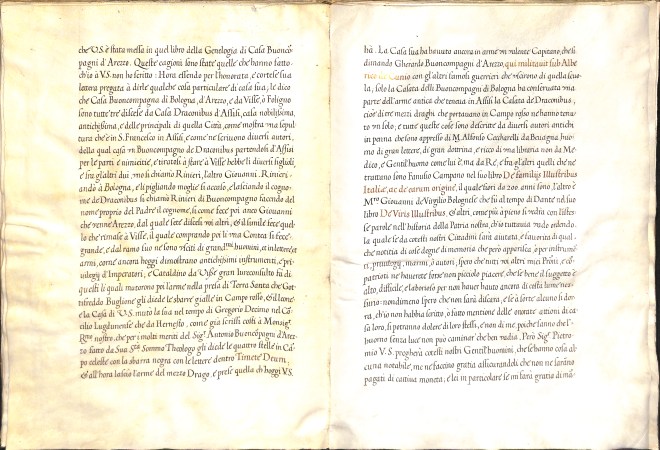 che V.S. è stata messa in quel libro della Genelogia di Casa Buoncõ
pagni d'Arezo. Queste cagioni sono state quelle che hanno fatto
ch'io à V.S. non hò scritto: Hora essendo per l'honorata, e cortese sua
lettera pregata à dirle qualche cosa particulare di casa sua, le dico
che Casa Buoncompagna di Bologna, d'Arezo, e da Visse, ò Foligno
sono tutte tre discese da Casa Draconibus d'Assisi, casa nobilissima,
antichissima, e delle principali di quella Città, come mostra una sepul
tura che è in S. Francesco in Assisi, e come ne scrivono diversi autori,
della qual casa un Buoncompagno de Draconibus partendosi d'Assisi
per le parti e nimicitie, e tiratosi à stare à Visse hebbe li diversi figliuoli,
e frà gl'altri dui uno si chiamò Rinieri, l'altro Giovanni. Rinieri
andò à Bologna, e li pigliando moglie si accasò, e lasciando il cogno-
me de Draconibus si chiamò Rinieri di Buoncompagno facendo del
nome proprio del Padre il cognome, si come fece poi anco Giovanni
che venne Arezo, dal quale sete discesi voi altri, & il simile fece quel
lo che rimase à Visse, il quale comprando poi la una Contea si fece
grande, e dal ramo suo ne sono usciti di grand.mi huomini, et in lettere et
armi, come ancora hoggi dimostrano antichissimi instrumenti, e pri-
vilegij d'Imperatori, e Cataldino da Visse gran Iureconsulto fù di
questi li quali mutorono poi l'arme nella presa di Terra Santa che Got
tifreddo Buglione gli diede le sbarre gialle in Campo rosso, & il leone
e la Casa di V.S. mutò la sua nel tempo di Gregorio Decimo nel Cõ
cilio Lugdunense che da Hernesto, come già scrissi costì à Monsig.r
R.mo nostro, che per i molti meriti del Sig.r Antonio Buoncõpagni d'Are
zo fatto da Sua S.tà Sommo Theologo gli diede le quattro stelle in Ca
po celeste con la sbarra negra con le lettere dentro Timete Deum,
& all'hora lasciò l'arme del mezzo Drago, e prese quella ch'hoggi V.S.
hà. La Casa sua hà havuto ancora in arme un valente Capitano, che si
dimandò Gherardo Buoncompagni d'Arezo, qui militavit sub Albe
rico con gl'altri famosi guerrieri che uscirono di quella scuo
la, solo la Casata delli Buoncompagni di Bologna hà conservata una
parte dell'arme antica che teneva in Assisi la Casata de Draconibus,
cioè di tre mezi draghi che portavano in Campo rosso ne hanno tenu
to un solo, e tutte quelle cose sono descritte da diversi autori antichi
in penna che sono appresso di M. Alfonso Ceccharelli da Bevagna huo-
mo di gran lettere, di gran dottrina, e ricco di una libreria non da Me
dico, e Gentil'huomo come lui è, ma da Rè, e frà gl'altri quelli che ne
trattano sono Fanusio Campano nel suo libro De familijs Illustribus
Italiæ, ac de earum origine, il quale fiorì da 200 anni sono, l'altro è
M.ro Giovanni de Virgilio Bolognese che fù al tempo di Dante nel suo
libro De Viris Illustribus, & altri, come più à pieno si vedrà con l'istes-
se parole nell'historia della Patria nostra, ch'io tuttavia vado ordendo.
la quale se da cotesti nostri Cittadini sarà aiutata, e favorita di qual
che notitia di cose degne di memoria che però apparisca, ò per instrumé
ti, privilegij, marmi, ò autori, spero che nuti voi altri miei Patri, e cõ
patrioti ne haverete forse non piccolo piacere, che se bene il suggetto è
alto, difficile, e laborioso per non haver havuto ancora di costì lume nes
suno: nondimeno spero che non sarà discaro, e se à sorte alcuno si dor-
rà, ch'io non habbia scritto, ò fatto mentione delle onorate attioni di ca
sa loro, si potranno dolere di loro stessi, e non di me poiche sanno che l'-
huomo senza luce non può caminar che ben vadia. Però Sig.r Pietro
mio V.S. pregherà cotesti nostri Gentil'huomini, che se hanno cosa al-
cuna notabile, me ne faccino gratia assicurandoli che non ne saráno
pagati di cattiva moneta, e lei in particolare se mi farà gratia di mã-